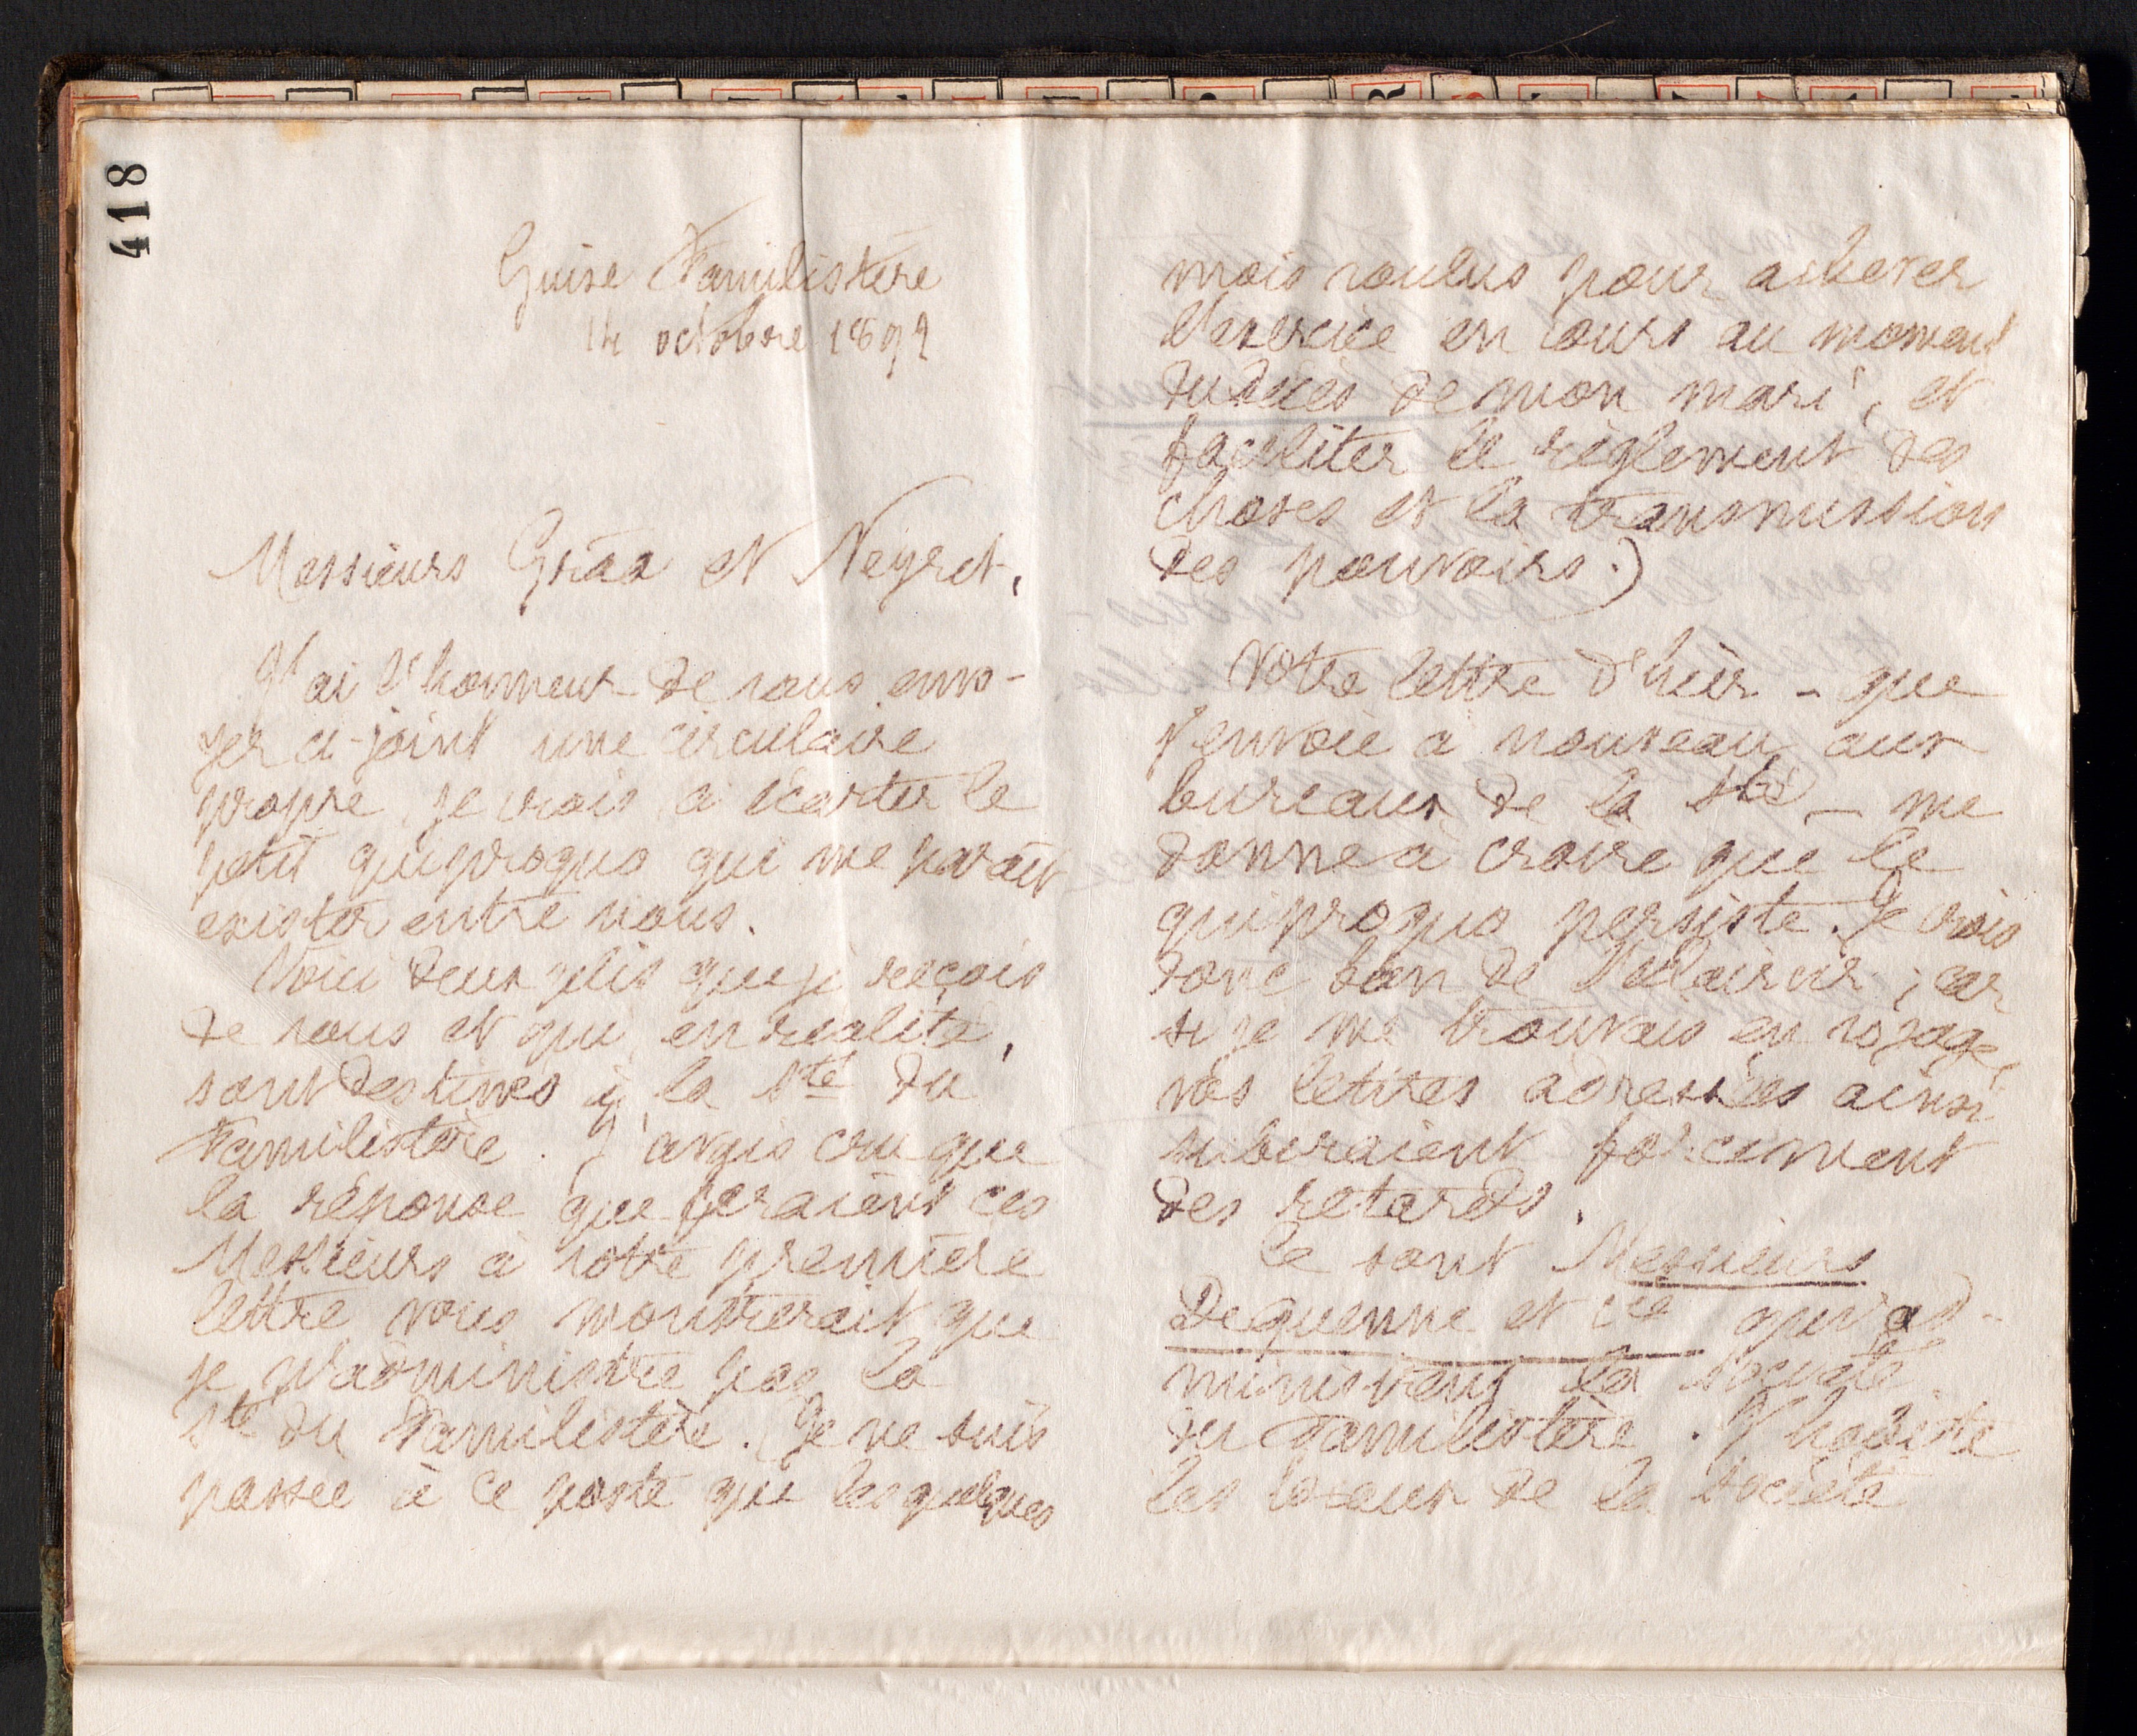 418
Guise Familistère
14 octobre 1892
Messieurs Graa et Neyret,
J'ai l'honneur de vous envo-
yer ci-joint une circulaire
propre, je crois, à écarter le
petit quiproquo qui me paraît
exister entre nous.
Voici deux plis que je reçois
de vous et qui, en réalité,
sont destinés à la Sté du
Familistère. J'avais cru que
la réponse que feraient ces
Messieurs à votre première
lettre vous montrerait que
je n'administre pas la
Sté du Familistère. (Je ne suis
passée à ce poste que les quelques
mois voulus pour achever
l'exercice en cours au moment
du décès de mon mari, et
faciliter le règlement des
choses et la transmission
des pouvoirs.)
Votre lettre d'hier - que
j'envoie à nouveau aux
bureaux de la Sté, - me
donne à croire que le
quiproquo persiste. Je crois
donc bon de l'éclaircir ; car
si je me trouvais en voyage,
vos lettres adressées ainsi
subiraient forcément
des retards.
Ce sont Messieurs
Dequenne et Cie qui ad-
ministrent la Société
du Familistère. J'habite
les locaux de la Société